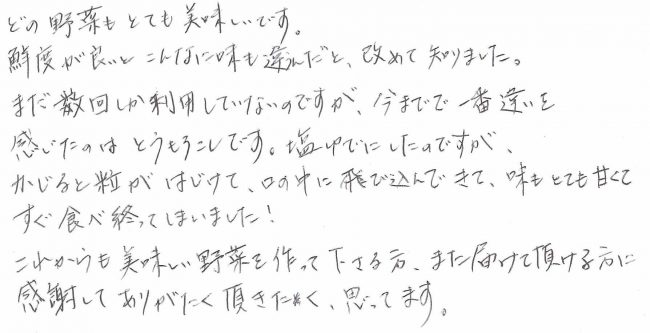 どの野菜もとても美味しいです。
鮮度が良いとこんなに味も違うんだと、改めて知りました。
まだ数回しか利用していないのですが、今までで一番違いを
感じたのはとうもろこしです。塩ゆでにしたのですが、
かじると粒がはじけて、口の中に飛び込んできて、味もとても甘くて
すぐ食べ終ってしまいました!
これからも美味しい野菜を作って下さる方、また届けて頂ける方に
感謝してありがたく頂きたく、思ってます。